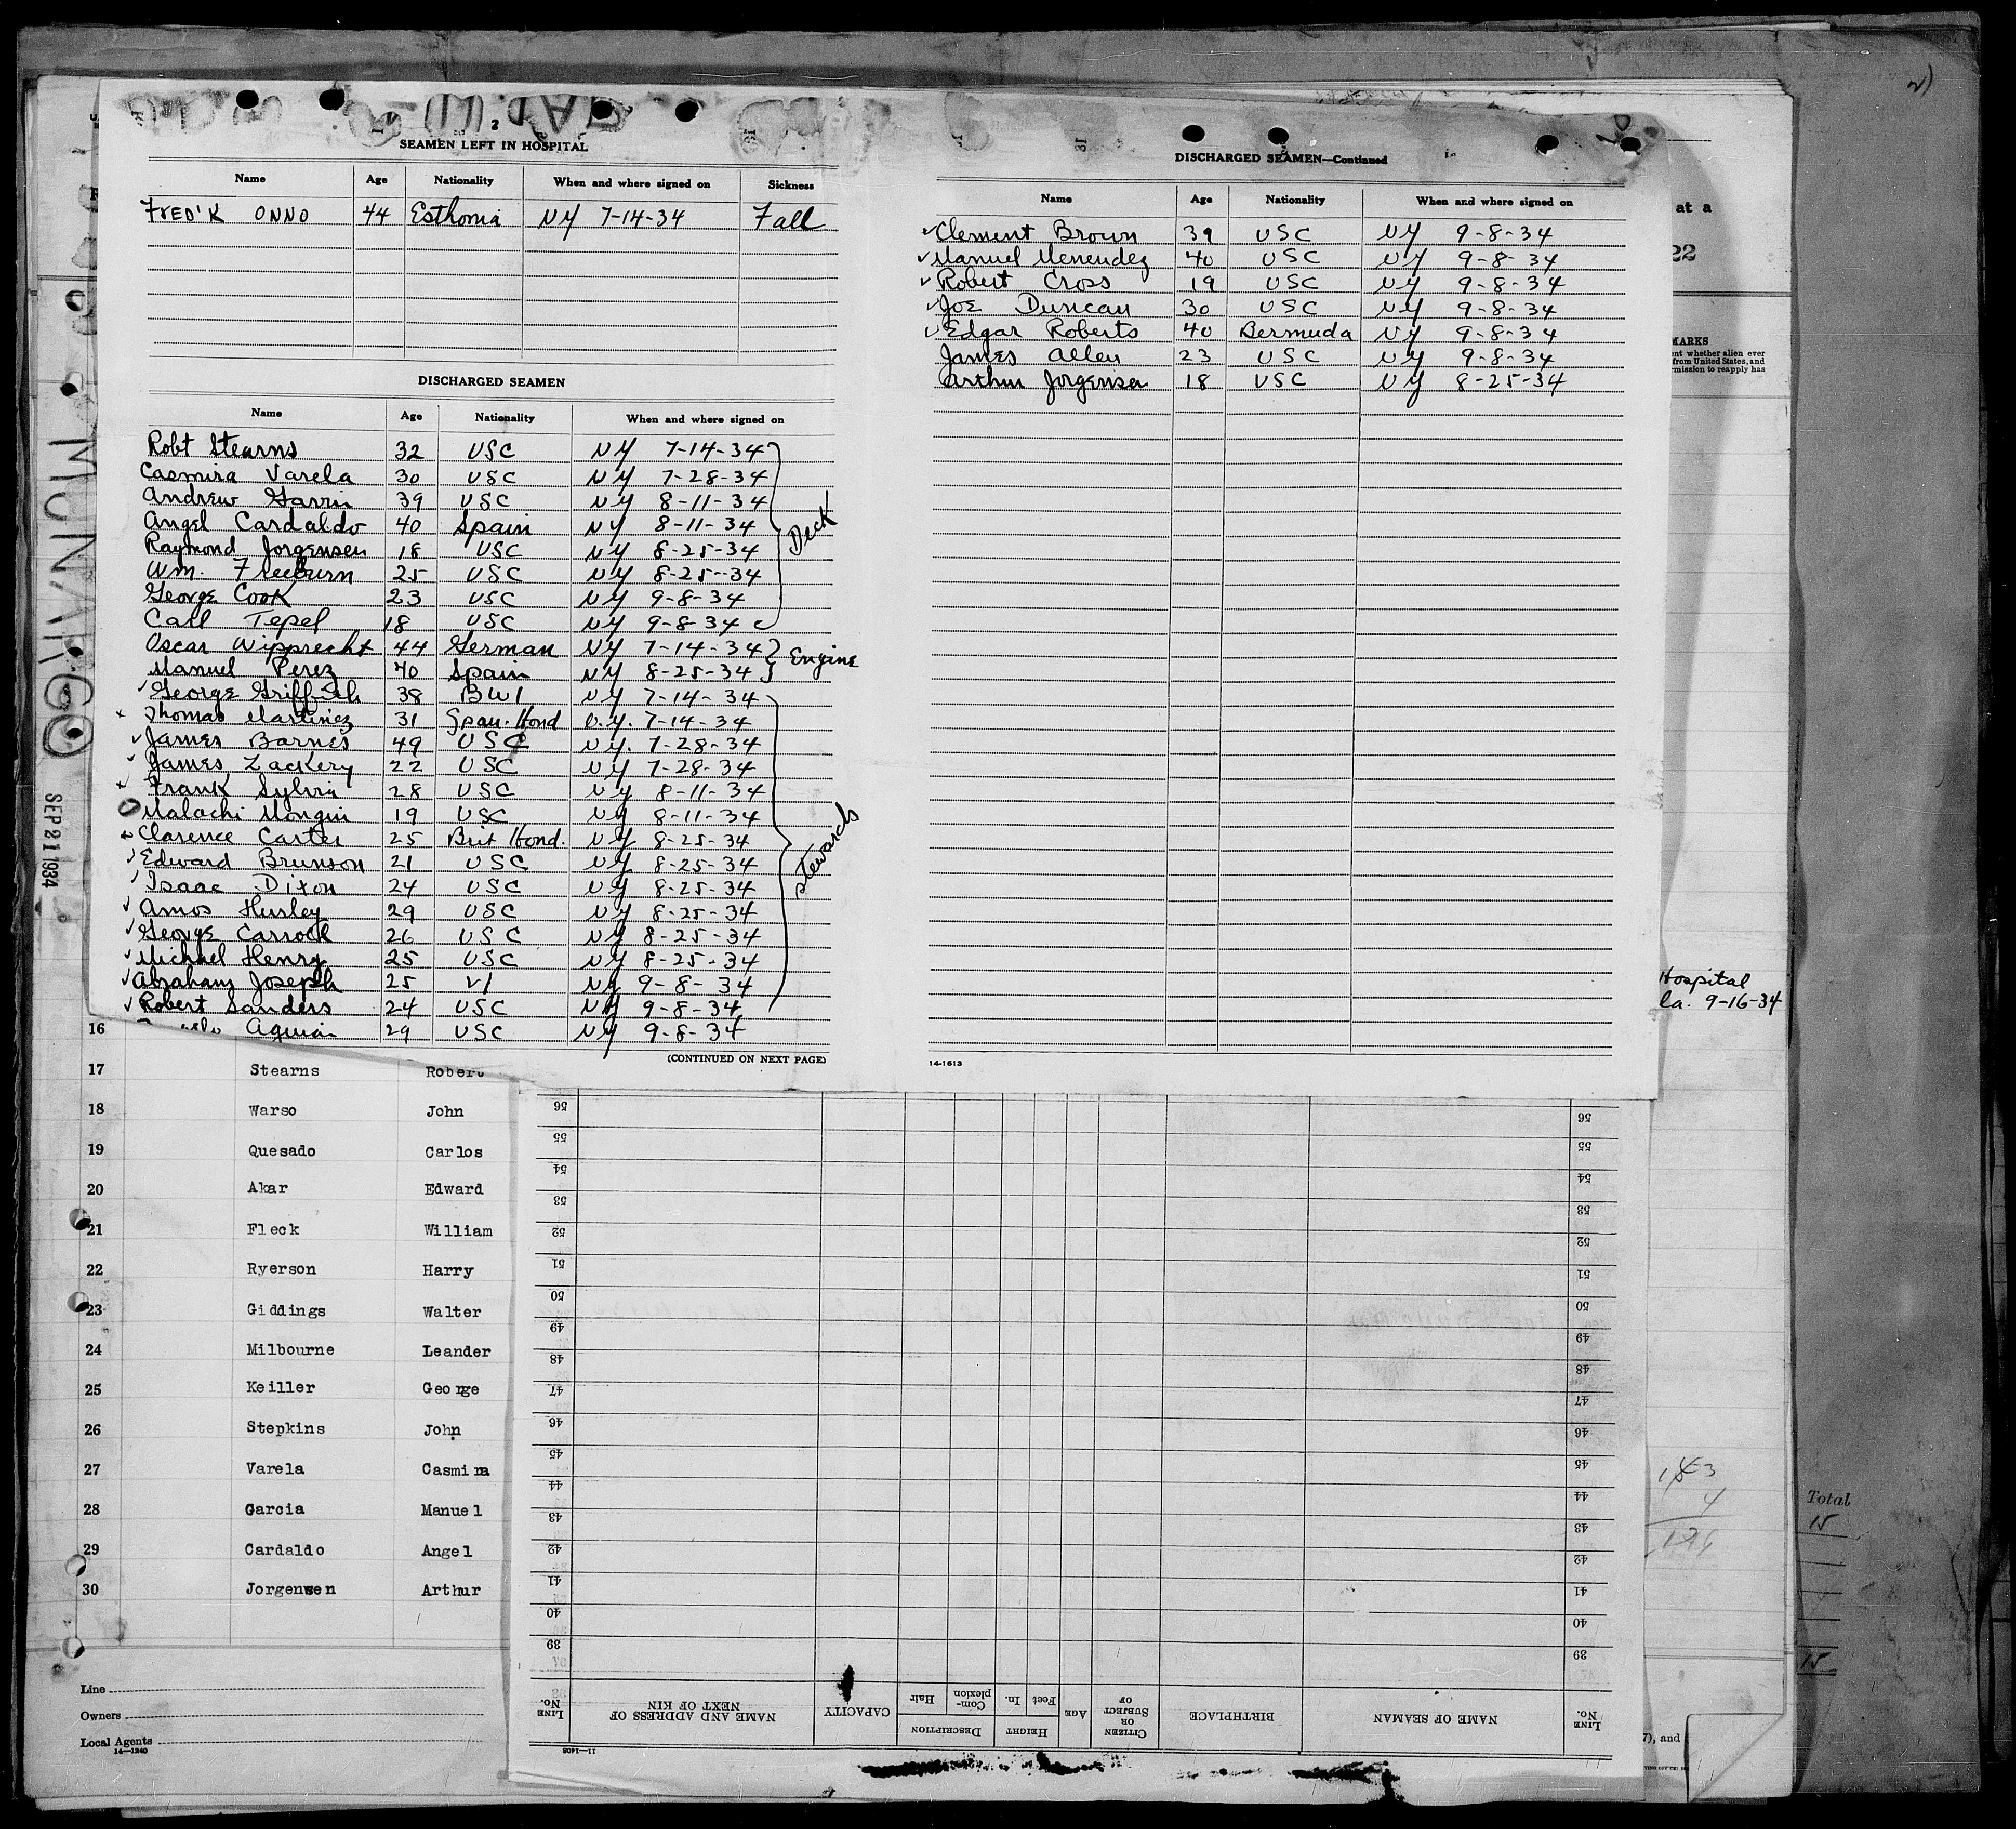 2
SEAMEN LEFT IN HOSPITAL
Name Age Nationality When and where signed on Sickness
FRED'K ONNO 44 Esthonia NY 7-14-34 Fall
DISCHARGED SEAMEN
Name Age Nationality When and where signed on
Robt Stearns 32 USC NY 7-14-34
Casmira Varela 30 USC NY 7-28-34
Andrew Garvin 39 USC NY 8-11-34
Angel Cardaldo 40 Spain NY 8-11-34
Raymond Jorgensen 18 USC NY 8-25-34
Wm. Freeburn 25 USC NY 8-25-34
George Cook 23 USC NY 9-8-34
Carl Tepel 18 USC NY 9-8-34
Deck
Oscar Wipprecht 44 German NY 7-14-34
Manuel Perez 40 Spain NY 8-25-34
Engine
George Griffith 38 BWI NY 7-14-34
Thomas Martinez 31 Span. Hond N.Y. 7-14-34
James Barnes 49 USC NY. 7-28-34
James Zackery 22 USC NY 7-28-34
Frank Sylvia 28 USC NY 8-11-34
Malachi Mongin 19 USC NY 8-11-34
Clarence Carter 25 Brit Hond. NY 8-25-34
Edward Brunson 21 USC NY 8-25-34
Isaac Dixon 24 USC NY 8-25-34
Amos Hurley 29 USC NY 8-25-34
George Carroll 26 USC NY 8-25-34
Michael Henry 25 USC NY 8-25-34
Abraham Joseph 25 VI NY 9-8-34
Robert Sanders 24 USC NY 9-8-34
29 USC NY 9-8-34
Stewards
(CONTINUED ON NEXT PAGE)
DISCHARGED SEAMEN—Continued
Name Age Nationality When and where signed on
Clement Brown 39 USC NY 9-8-34
Manuel Menendez 40 USC NY 9-8-34
Robert Cross 19 USC NY 9-8-34
Joe Duncan 30 USC NY 9-8-34
Edgar Roberts 40 Bermuda NY 9-8-34
James Allen 23 USC NY 9-8-34
Arthur Jorgensen 18 USC NY 8-25-34
14-1613
MUNARGO
SEP 21 1934
at a
22
MARKS
ent whether alien ever
from United States, and
rmission to reapply has
Hospital
la. 9-16-34
16
17 Stearns Robert
18 Warso John
19 Quesado Carlos
20 Akar Edward
21 Fleck William
22 Ryerson Harry
23 Giddings Walter
24 Milbourne Leander
25 Keiller George
26 Stepkins John
27 Varela Casmira
28 Garcia Manuel
29 Cardaldo Angel
30 Jorgensen Arthur
Line
Owners
Local Agents
14—1240
56 56
55 55
54 54
53 53
52 52
51 51
50 50
49 49
48 48
47 47
46 46
45 45
44 44
43 43
42 42
41 41
40 40
39 39
LINE No. NAME OF SEAMAN BIRTHPLACE CITIZEN OR SUBJECT OF AGE HEIGHT Feet In. DESCRIPTION Complexion Hair CAPACITY NAME AND ADDRESS OF NEXT OF KIN LINE No.
11—1408
Total
15
15
7), and